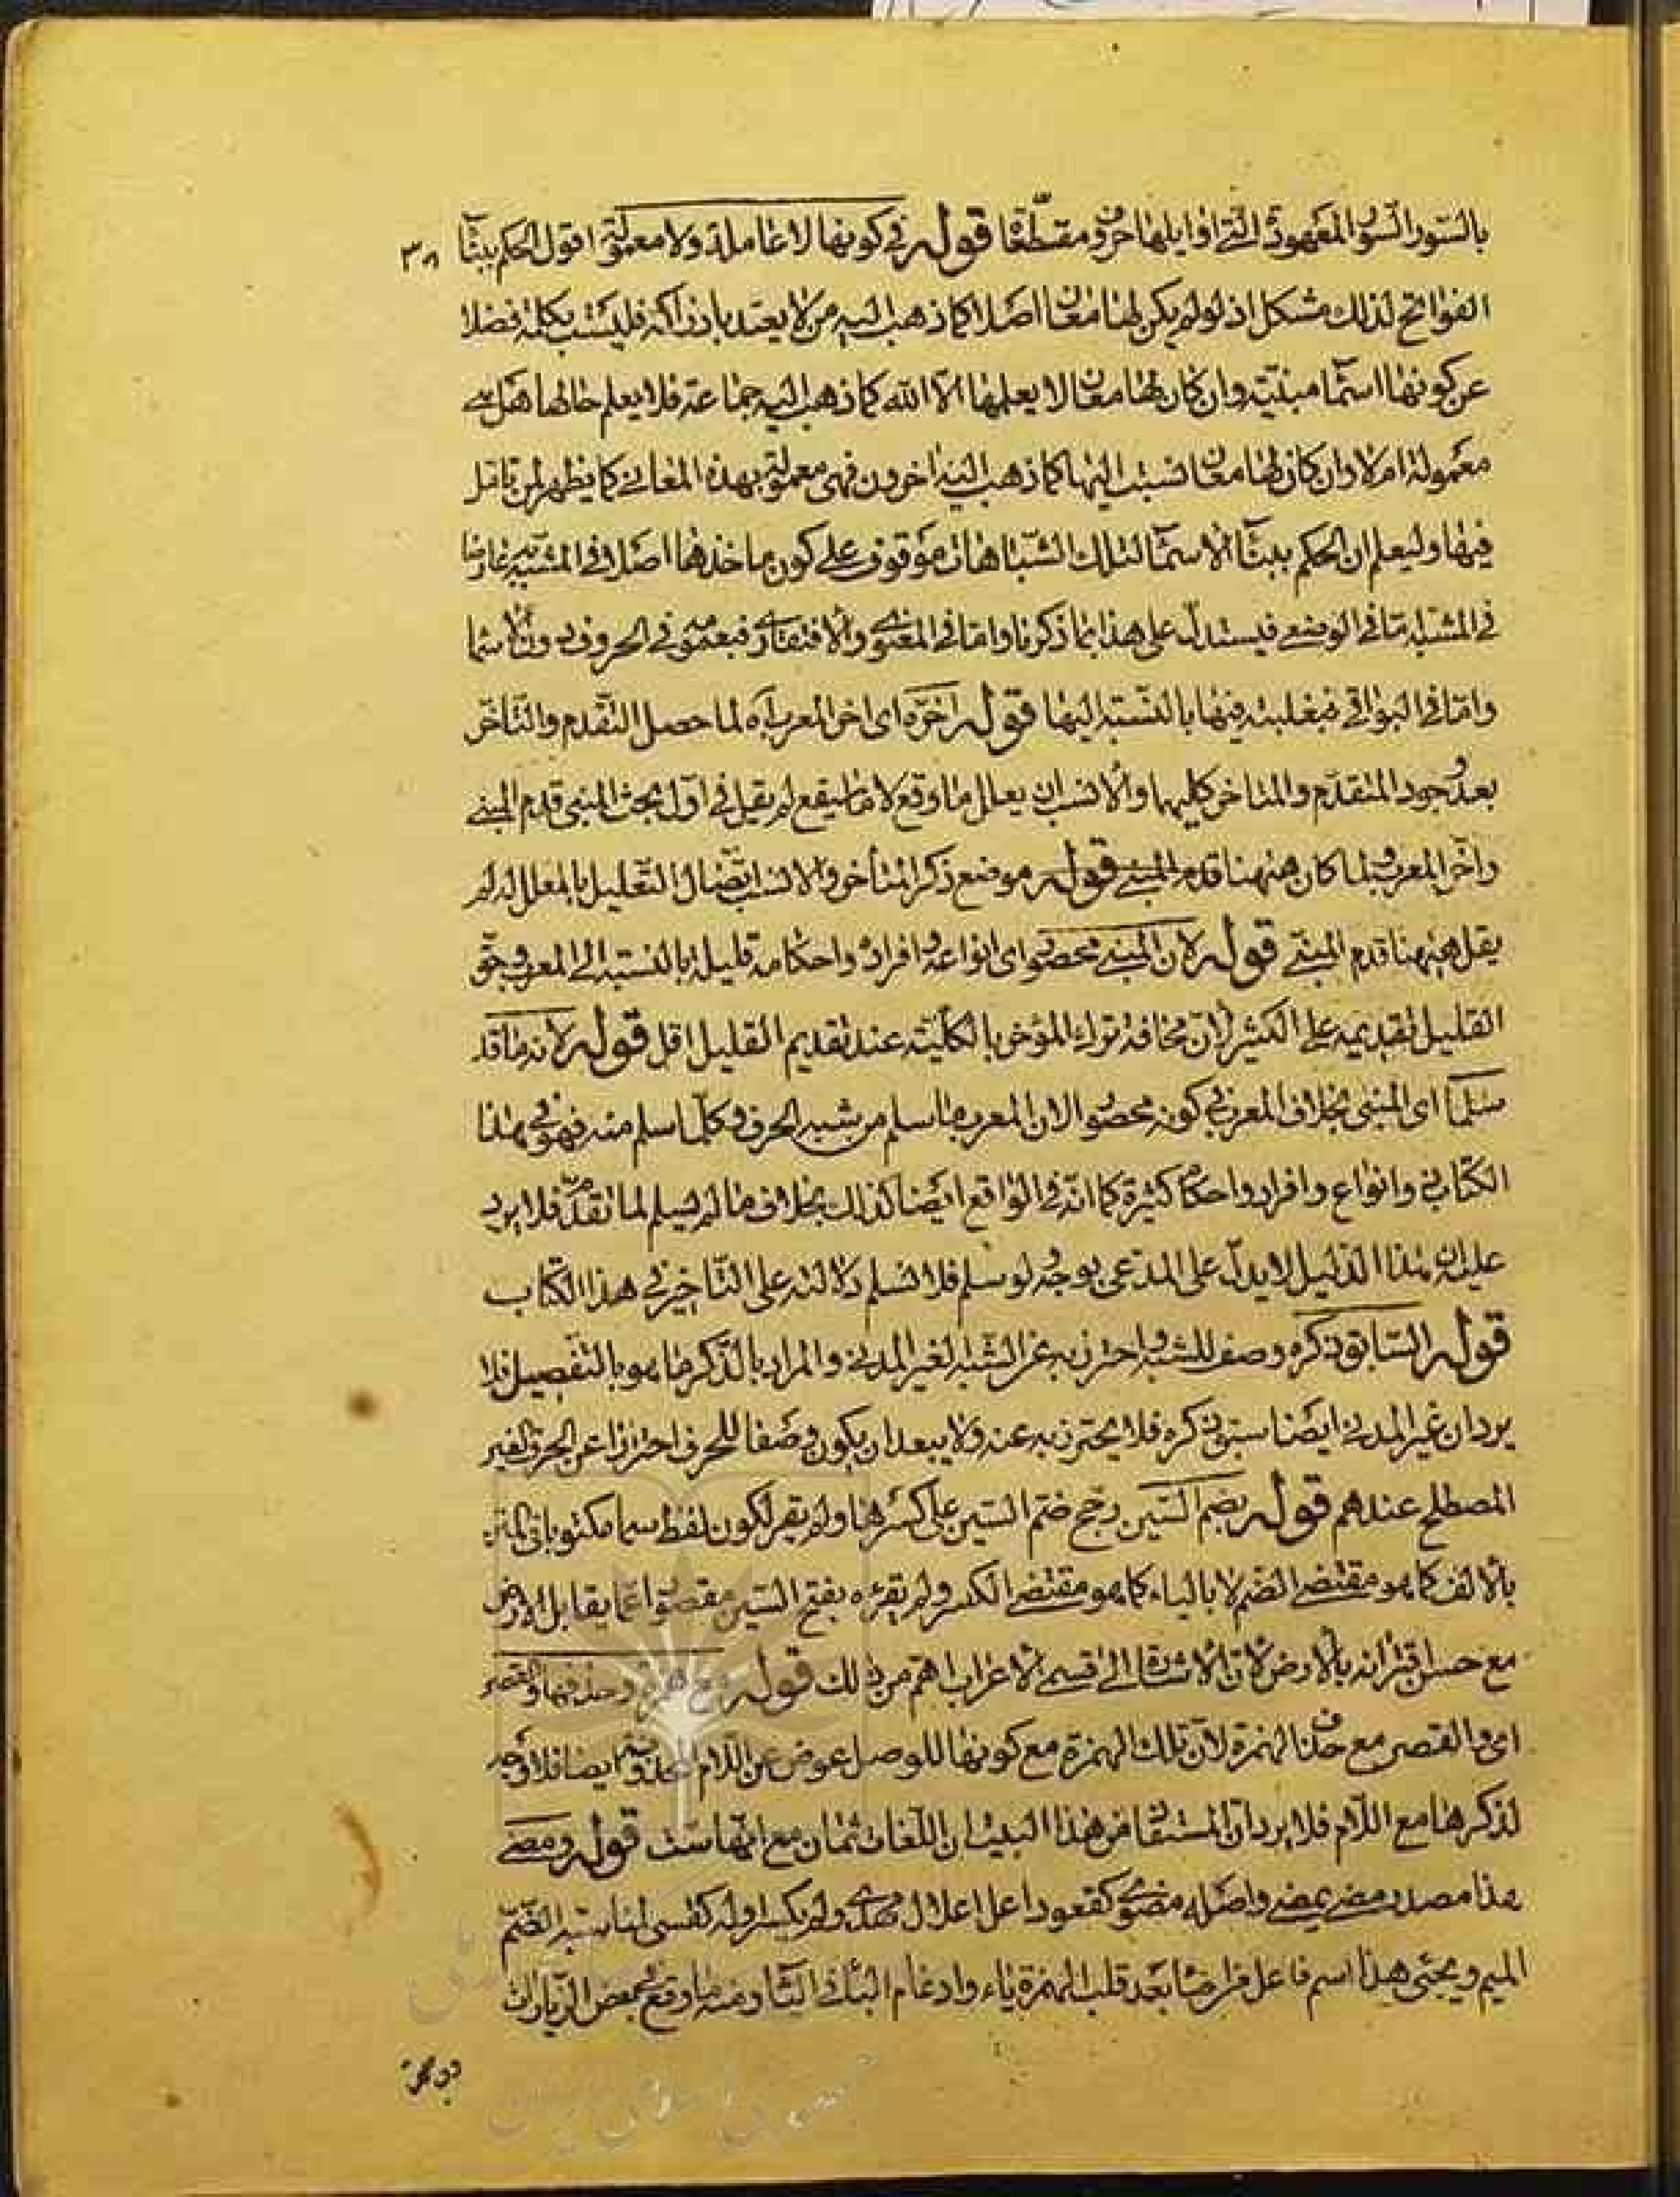 بالسور السور المعهودة التي اوايلها حروف مقطعة قوله في كونها لا عاملة ولا معمولة اقول الحكم ببناء ٣٨
الفواتح لذلك مشكل اذ لو لم يكن لها معان اصلا كما ذهب اليه من لا يعتد بادراكه فليست بكلمة فضلا
عن كونها اسما مبنية وان كان لها معان لا يعلمها الا الله كما ذهب اليه جماعة فلا يعلم حالها هل هي
معمولة ام لا وان كان لها معان نسبت اليها كما ذهب اليه اخرون فهي معمولة بهذه المعاني كما يظهر لمن تامل
فيها وليعلم ان الحكم ببناء الاسماء لتلك الشباهات موقوف على كون ماخذها اصلا في المشبه به عارضا
في المشبه اما في الوضعي فيستدل على هذا بما ذكرنا واما في المعنوي والافتقاري فبعمومه في الحروف دون الاسما
واما في البواقي فبغلبته فيها بالنسبة اليها قوله اخره اى اخر المعرب اه لما حصل التقدم والتاخر
بعد وجود المتقدم والمتاخر كليهما والانسب ان يعلل ما وقع لا ما سيقع لم يقل في اول بحث المبنى قدم المبنى
واخر المعرب بل لما كان ههنا قدم المبنى قوله موضع ذكر المتأخر والانسب ايضا التعليل بالمعلل له لم
يقل ههنا قدم المبنى قوله لان المبنى محصور اى انواعه وافراده واحكامه قليلة بالنسبة الى المعرب وحق
القليل تقديمه على الكثير لان مخافة ترك المؤخر بالكلية عند تقديم القليل اقل قوله لانه ما قد
سلما اى المبنى بخلاف المعرب في كونه محصورا لان المعرب ما سلم من شبه الحرف وكل ما سلم منه فهو في هذا
الكتاب ذو انواع وافراد واحكام كثيرة كما انه في الواقع ايضا كذلك بخلاف ما لم يسلم لما تقدم فلا يرد
عليه ان هذا الدليل لا يدل على المدعى بوجه ولو سلم فلا نسلم دلالته على التاخير في هذا الكتاب
قوله السابق ذكره وصف للشبه واحترز به عن الشبه الغير المدني والمراد بالذكر ما هو بالتفصيل فلا
يرد ان غير المدني ايضا سبق ذكره فلا يحترز به عنه ولا يبعد ان يكون وصفا للحرف احترازا عن الحرف الغير
المصطلح عندهم قوله بضم السين رجح ضم السين على كسرها ولم يقر لكون لفظ سما مكتوبا في المتن
بالالف كما هو مقتضى الضم لا بالياء كما هو مقتضى الكسر ولم يقرءه بفتح السين مقصورا عما يقابل الارض
مع حسن اقترانه بالارض لان الاشارة الى قسمي الاعراب اهم من ذلك قوله مع همزة وحذفها والقصر
اى والقصر مع حذف الهمزة لان تلك الهمزة مع كونها للوصل عوض عن اللام المحذوفة ايضا فلا وجه
لذكرها مع اللام فلا يرد ان المستفاد من هذا البيت ان اللغات ثمان مع انها ست قوله ومضى
هذا مصدر مضى يمضى واصله مضوى كقعود اعل اعلال مهدى ولم يكسر اوله كقسى لمناسبة الضم
الميم ويجئى هذا اسم فاعل بعد قلب الهمزة ياء وادغام الياء فى الياء ومنه ما وقع في بعض الزيارات